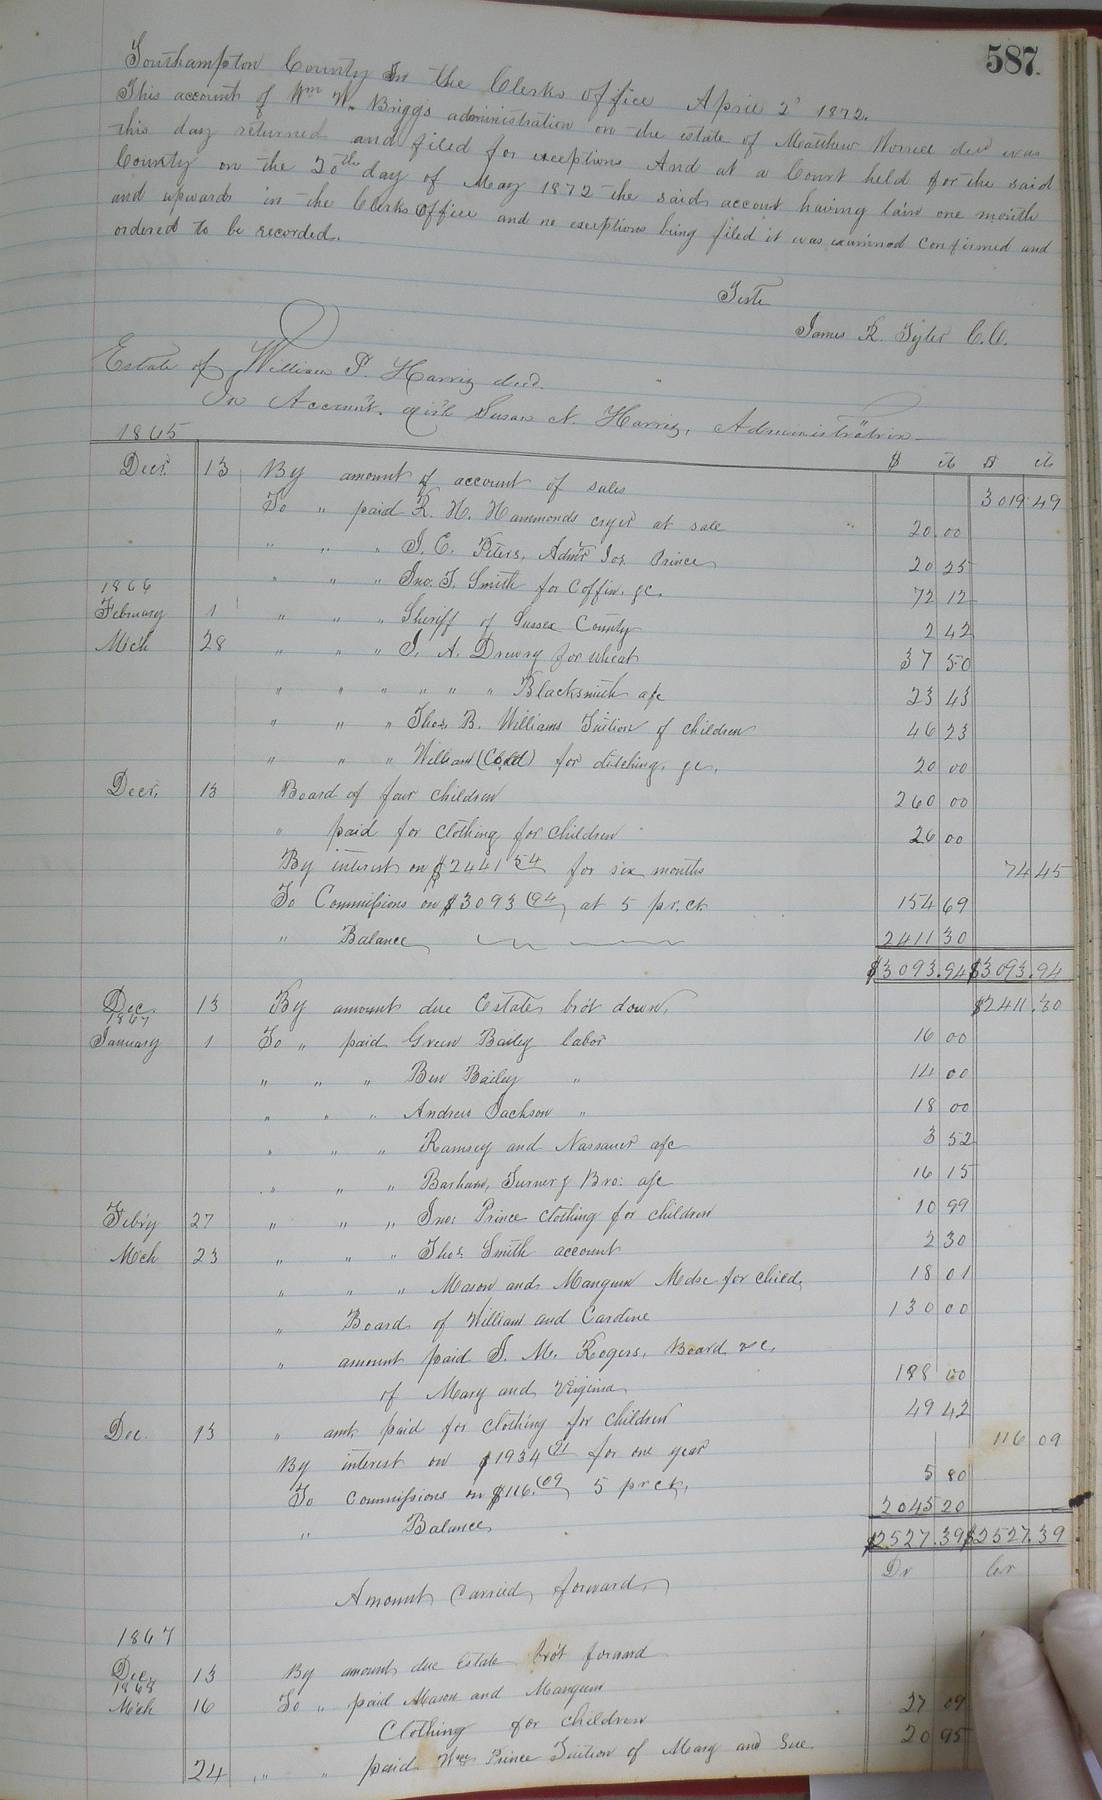 587.
Southampton County In the Clerks office April 2d 1872.
This account of Wm W. Briggs administration on the estate of Matthew Worrell decd was
this day returned and filed for exceptions And at a Court held for the said
County on the 20th day of May 1872 the said account having lain one month
and upwards in the Clerks Office and no exceptions being filed it was examined confirmed and
ordered to be recorded.
Teste
James R. Tyler C.C.
Estate of William P. Harris decd.
In Account with Susan N. Harris, Administratrix
1865 $ cts $ cts
Decr. 13 By amount of account of sales 3019 49
To " paid R. H. Hammonds cryer at sale 20 00
" " " J. E. Peters, Admr Jos. Prince 20 25
" " " Jno. T. Smith for Coffin &c. 72 12
1866
February 1 " " " Sheriff of Sussex County 2 42
Mch 28 " " " J. A. Drewry for wheat 37 50
" " " " " " Blacksmith a/c 23 43
" " " Thos. B. Williams Tuition of children 46 23
" " " William (Cold) for ditching, &c. 20 00
Decr. 13 Board of four children 260 00
" paid for clothing for children 26 00
By interest on $2441 54 for six months 74 45
To Commissions on $3093 94 at 5 pr. ct. 154 69
" Balance 2411 30
$3093.94 $3093.94
Dec. 13 By amount due Estate brot down. $2411.30
1867
January 1 To " paid Green Bailey labor 16 00
" " " Ben Bailey " 14 00
" " " Andrew Jackson " 18 00
" " " Ramsey and Nassauer a/c 3 52
" " " Barham, Turner & Bro: a/c 16 15
Feb'ry 27 " " " Jno: Prince clothing for children 10 99
Mch 23 " " " Thos. Smith account 2 30
" " " Mason and Mangum Mdse for child. 18 01
" Board of William and Cardine 130 00
" amount paid J. M. Rogers, Board &c.
of Mary and Virginia 198 00
Dec. 13 " amt. paid for clothing for children 49 42
By interest on $1934 91 for one year 116 09
To Commissions on $116.09 5 pr ct. 5 80
" Balance 2045 20
$2527.39 $2527.39
Amount Carried forward. Dr Cr
1867
Dec. 13 By amount due Estate brot forward
1868
Mch 16 To " paid Mason and Mangum
Clothing for children 27 09
24 " " paid Wm Prince Tuition of Mary and Sue 20 95